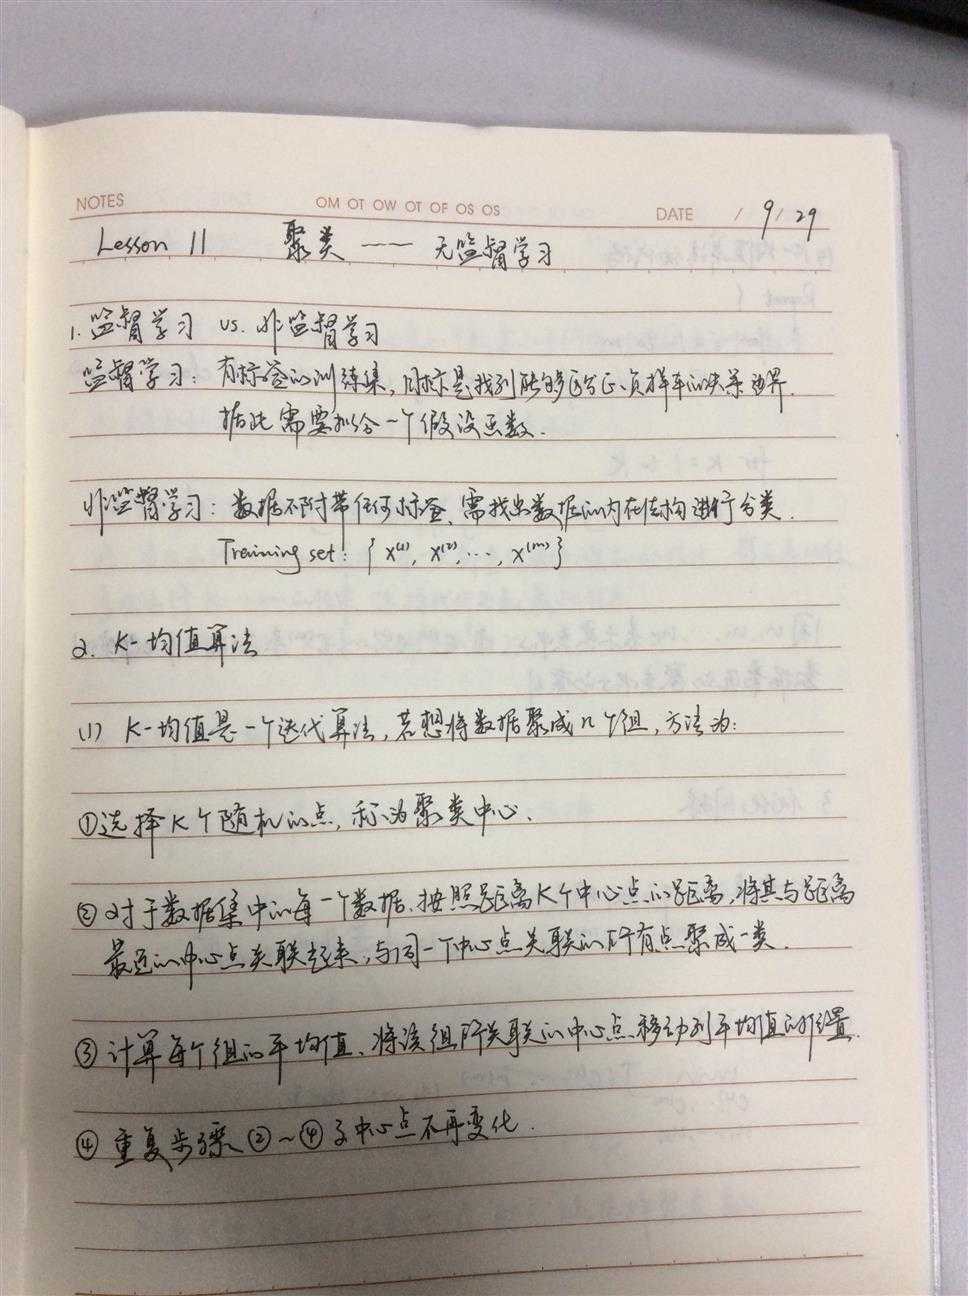 NOTES OM OT OW OT OF OS OS DATE / 9 / 29
Lesson 11 聚类 —— 无监督学习
1. 监督学习 vs. 非监督学习
监督学习: 有标签的训练集, 目标是找到能够区分正、负样本的决策边界.
据此需要拟合一个假设函数.
非监督学习: 数据不附带任何标签, 需找出数据的内在结构进行分类.
Training set: { x⁽¹⁾, x⁽²⁾, ..., x⁽ᵐ⁾ }
2. K-均值算法
(1) K-均值是一个迭代算法, 若想将数据聚成n个组, 方法为:
① 选择K个随机的点, 称为聚类中心.
② 对于数据集中的每一个数据, 按照距离K个中心点的距离, 将其与距离
最近的中心点关联起来, 与同一个中心点关联的所有点聚成一类.
③ 计算每个组的平均值, 将该组所关联的中心点移动到平均值的位置.
④ 重复步骤②~④至中心点不再变化.